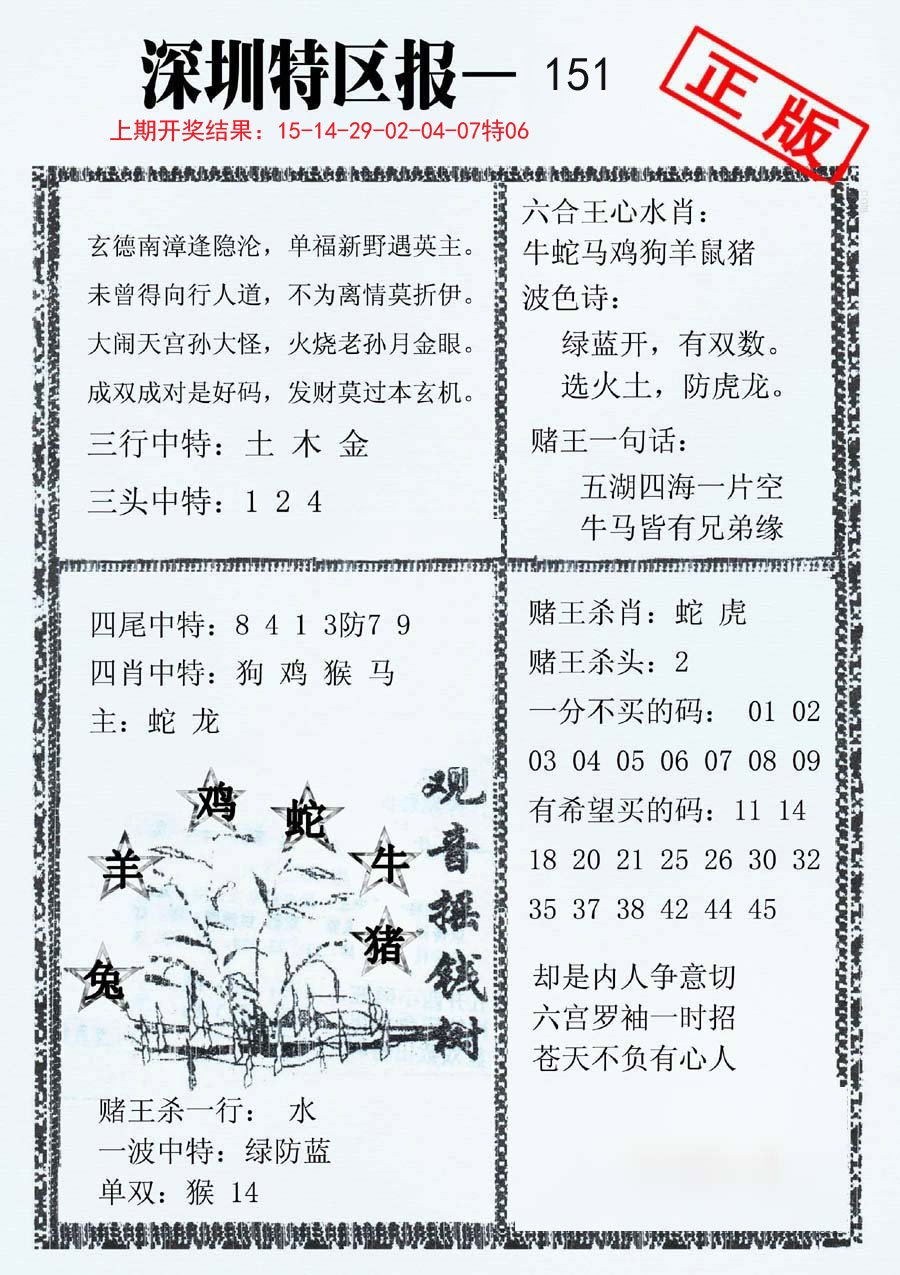 深圳特区报— 151
正版
上期开奖结果：15-14-29-02-04-07特06
玄德南漳逢隐沦，单福新野遇英主。
未曾得向行人道，不为离情莫折伊。
大闹天宫孙大怪，火烧老孙月金眼。
成双成对是好码，发财莫过本玄机。
三行中特：土 木 金
三头中特：1 2 4
六合王心水肖：
牛蛇马鸡狗羊鼠猪
波色诗：
绿蓝开，有双数。
选火土，防虎龙。
赌王一句话：
五湖四海一片空
牛马皆有兄弟缘
四尾中特：8 4 1 3防7 9
四肖中特：狗 鸡 猴 马
主：蛇 龙
鸡
蛇
羊
牛
猪
兔
观音摇钱树
赌王杀一行： 水
一波中特：绿防蓝
单双：猴 14
赌王杀肖：蛇 虎
赌王杀头：2
一分不买的码： 01 02
03 04 05 06 07 08 09
有希望买的码：11 14
18 20 21 25 26 30 32
35 37 38 42 44 45
却是内人争意切
六宫罗袖一时招
苍天不负有心人